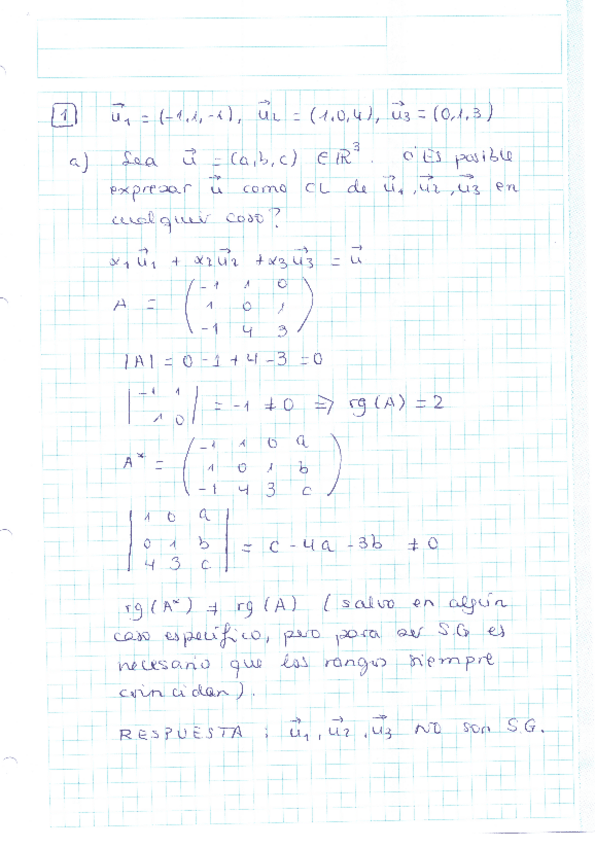 1 u⃗1 = (-1,1,-1), u⃗2 = (1,0,4), u⃗3 = (0,1,3)
a) Sea u⃗ = (a,b,c) ∈ ℝ³. ¿Es posible
expresar u⃗ como CL de u⃗1, u⃗2, u⃗3 en
cualquier caso?
α1u⃗1 + α2u⃗2 + α3u⃗3 = u⃗
-1 1 0
A = ( 1 0 1 )
-1 4 3
|A| = 0 - 1 + 4 - 3 = 0
| -1 1
1 0 | = -1 ≠ 0 ⇒ rg(A) = 2
-1 1 0 a
A* = ( 1 0 1 b )
-1 4 3 c
| 1 0 a |
| 0 1 b | = c - 4a - 3b ≠ 0
| 4 3 c |
rg(A*) ≠ rg(A) (salvo en algún
caso específico, pero para ser S.G es
necesario que los rangos siempre
coincidan).
RESPUESTA: u⃗1, u⃗2, u⃗3 NO son S.G.